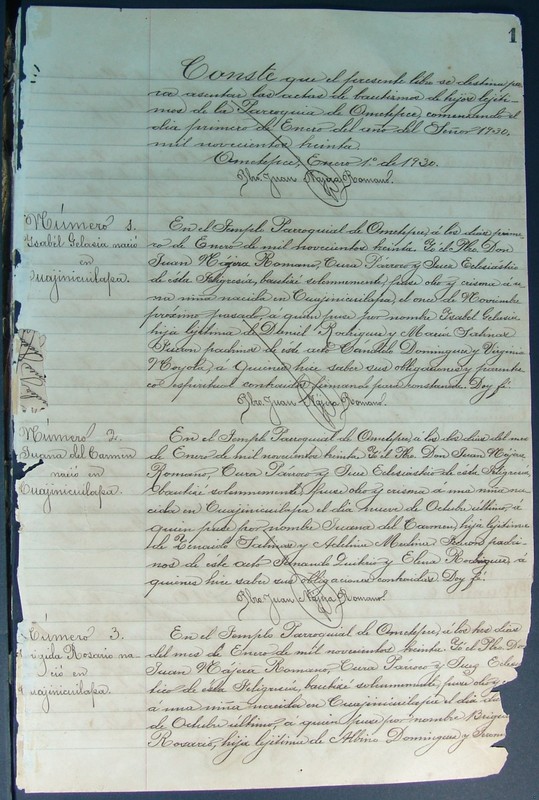 1
Conste que el presente libro se destina pa-
ra asentar las actas de bautismos de hijos legíti-
mos de la Parroquia de Ometepec, comenzando el
día primero de Enero del año del Señor 1930,
mil novecientos treinta.
Ometepec, Enero 1º de 1930.
Pbro. Juan Nájera Romano.
Número 1.
Isabel Gelasia nació
en
Cuajinicuilapa.
En el Templo Parroquial de Ometepec, á los dias prime-
ro de Enero de mil novecientos treinta. Yo el Pbo. Don
Juan Nájera Romano, Cura Párroco y Juez Eclesiástico
de ésta feligresía, bautisé solemnemente, puse oleo y crisma á u-
na niña nacida en Cuajinicuilapa, el once de Noviembre
próximo pasado, á quien puse por nombre Isabel Gelasia
hija legítima de Daniel Rodríguez y María Salinas
Fueron padrinos de éste acto Candido Dominguez y Virginia
Noyola, á quienes hice saber sus obligaciones y parentes-
co espiritual contraidos, firmando para constancia. Doy fé.
Pbro. Juan Nájera Romano.
Número 2.
Juana del Carmen
nació en
Cuajinicuilapa.
En el Templo Parroquial de Ometepec, á los dos dias del mes
de Enero de mil novecientos treinta. Yo el Pbo. Don Juan Nájera
Romano, Cura Párroco y Juez Eclesiástico de ésta feligresía,
bautisé solemnemente, puse oleo y crisma á una niña na-
cida en Cuajinicuilapa el día nueve de Octubre último, á
quien puse por nombre Juana del Carmen, hija legítima
de Salinas y Adelina Medina. Fueron padri-
nos de éste acto Fernando y Elena Rodriguez, á
quienes hice saber sus obligaciones contraidas. Doy fé.
Pbro. Juan Nájera Romano.
Número 3.
Brígida Rosario na-
ció en
Cuajinicuilapa.
En el Templo Parroquial de Ometepec, á los tres dias
del mes de Enero de mil novecientos treinta. Yo el Pbo. Don
Juan Nájera Romano, Cura Párroco y Juez Eclesiás-
tico de ésta feligresía, bautisé solemnemente, puse oleo y
á una niña nacida en Cuajinicuilapa el día
de Octubre último, á quien puse por nombre Brígida
Rosario, hija legítima de Albino Dominguez y Juana